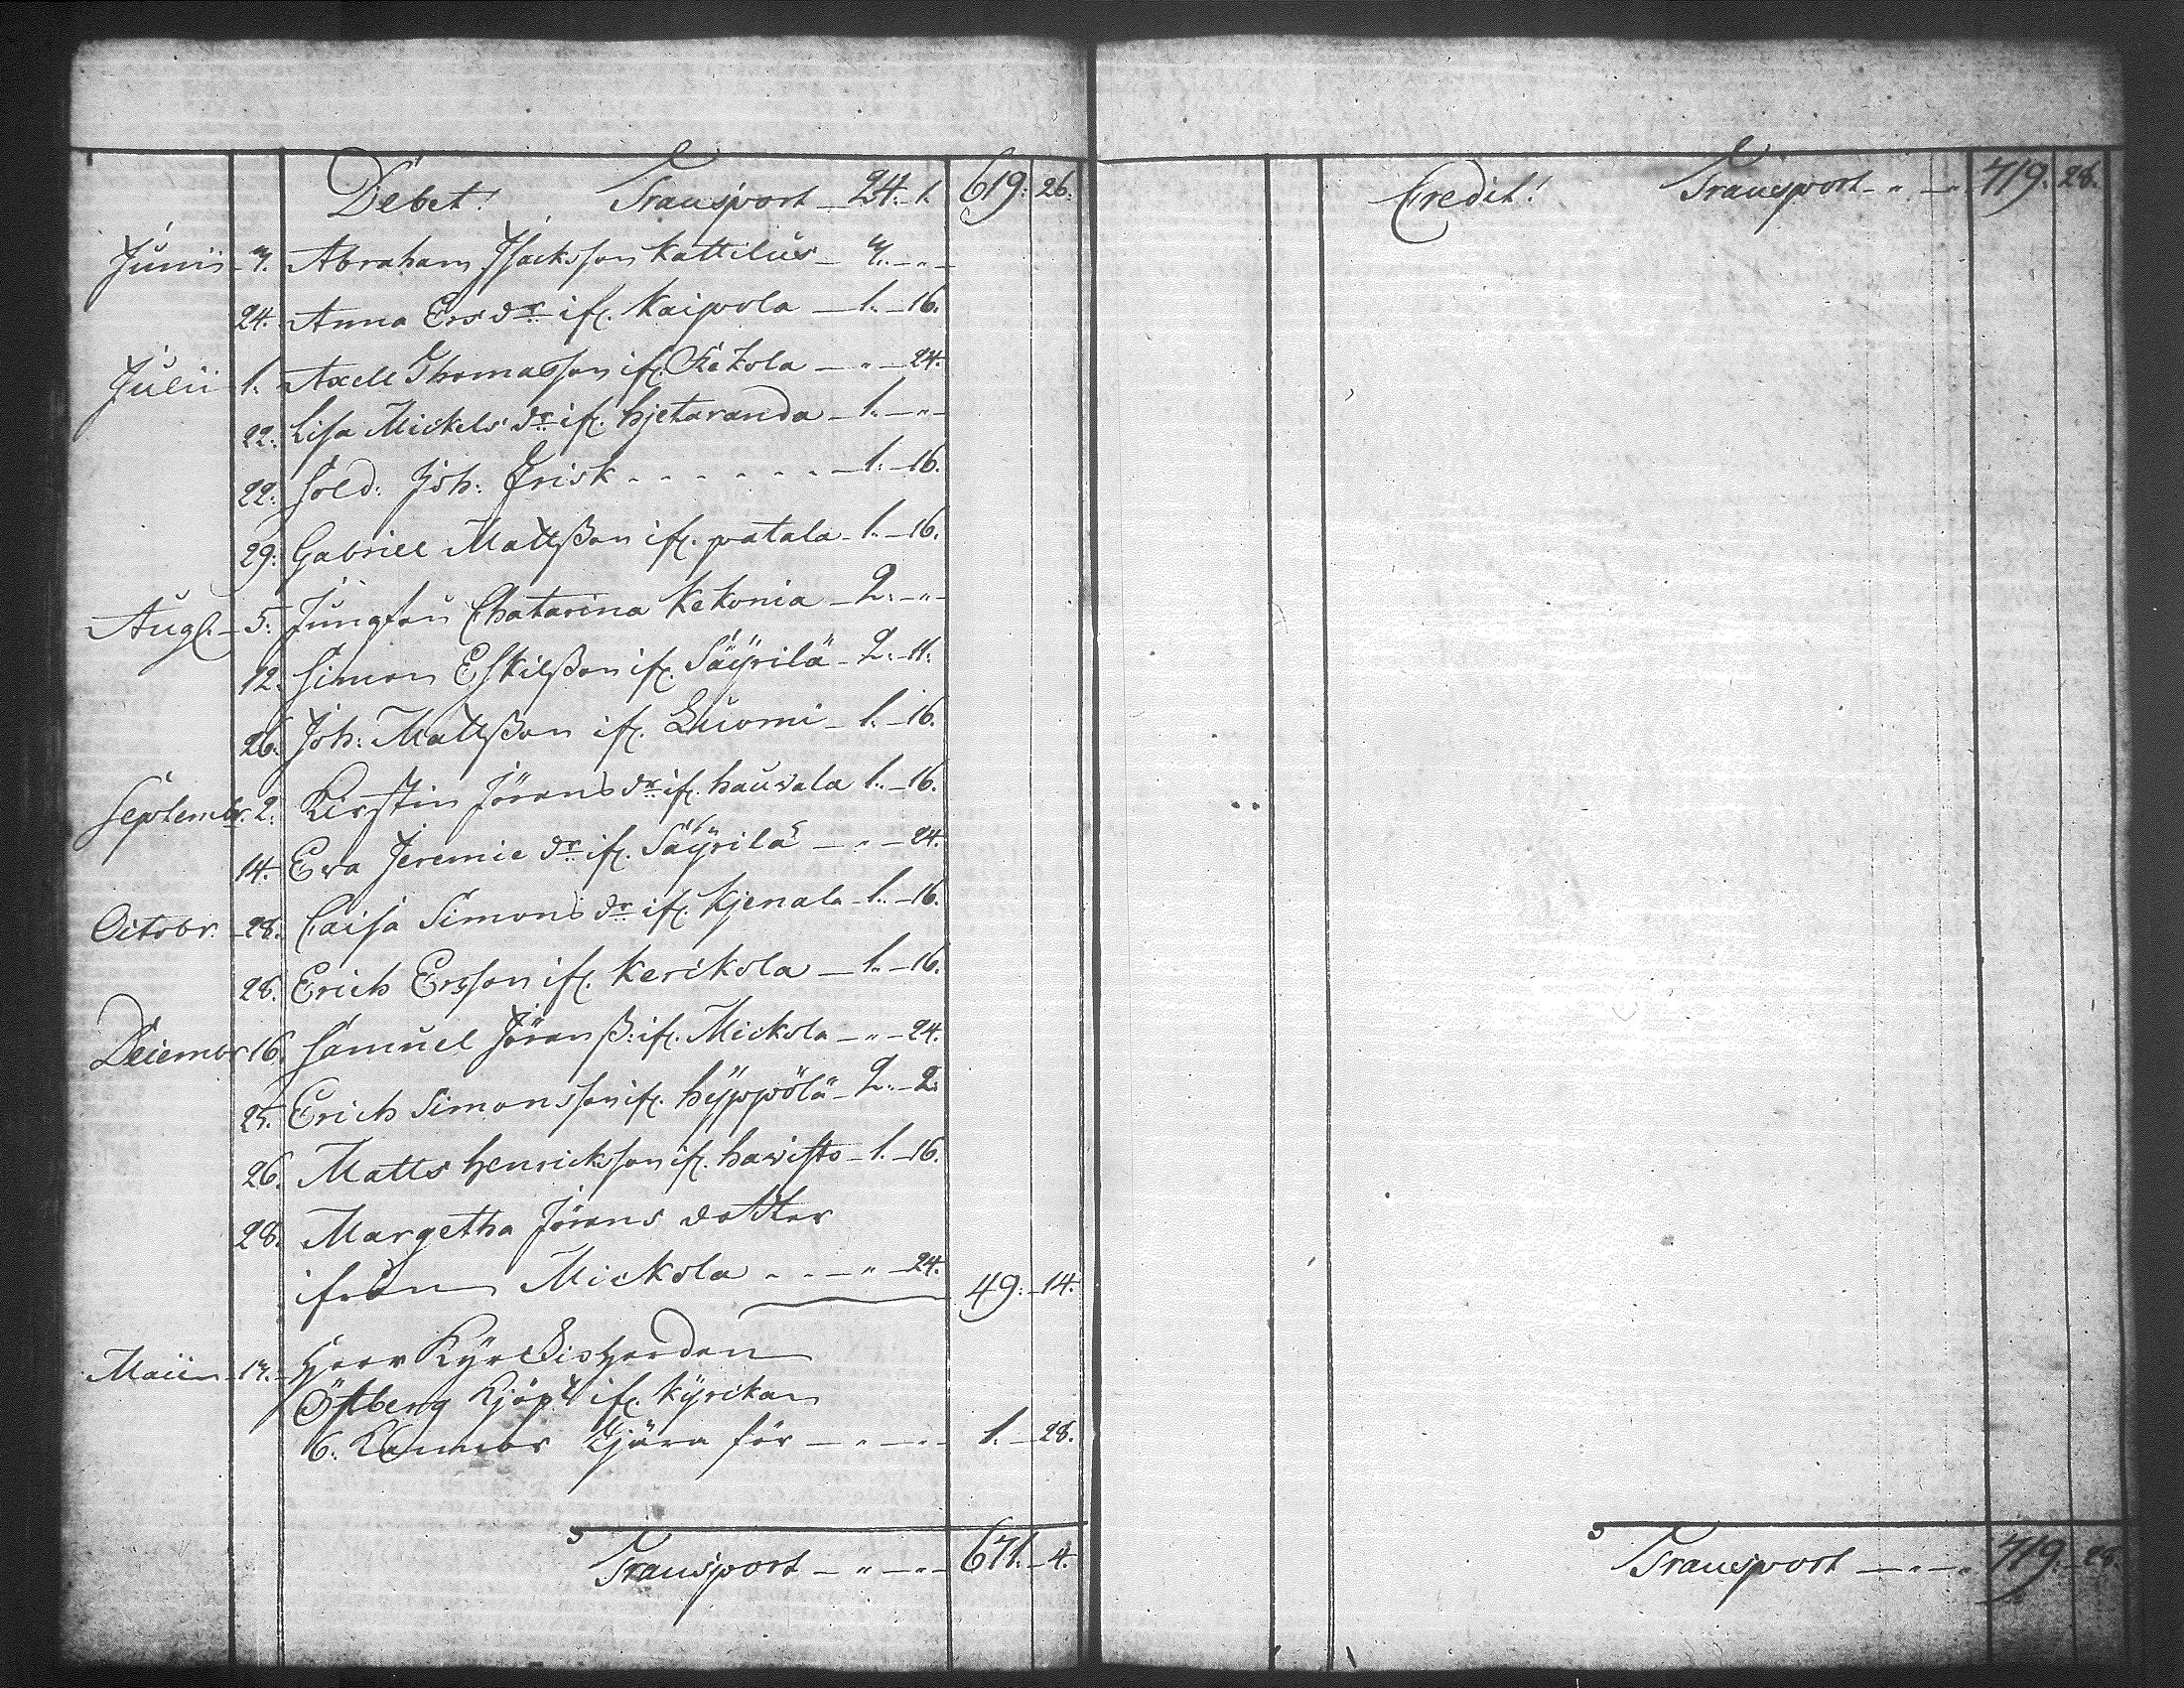 Debet! Transport 24. 1. 619: 26.
Junii 7. Abraham Isacksson Kattilus 4. "
24. Anna Ersdr. ifr. Kaipola 1. 16.
Julii 1. Axell Thomasson ifr. Kekola " 24.
22. Lisa Mickelsdr. ifr. hjetaranda 1. "
22. Sold: Joh: Frisk 1. 16.
29. Gabriel Mattsson ifr. patala 1. 16.
Aug. 5. Jungfru Chatarina Kekonia 2. "
12. Simon Eskilsson ifr. Säÿrilä 2. 11.
26. Joh: Mattsson ifr. Luomi 1. 16.
Septembr. 2. Kirstin Jöransdr. ifr. hauvala 1. 16.
14. Eva Jeremiedr. ifr. Säÿrilä " 24.
Octobr. 28. Caisa Simonsdr. ifr. Kjenala 1. 16.
28. Erich Ersson ifr. Kerikola 1. 16.
Decembr 16. Samuel Jöranss: ifr. Mickola " 24.
25. Erich Simonsson ifr. hÿppölä 2. 2.
26. Matts Henricksson ifr. havisto 1. 16.
28. Margetha Jörans dotter
ifrån Mickola " 24. 49: 14.
Maii 17. Herr Kÿrckioherden
Östberg Kjöpt ifr. Kÿrckan
6. Kannor Tjära för 1. 28.
Transport 671. 4.
Credit! Transport 719. 28.
Transport 719. 28.